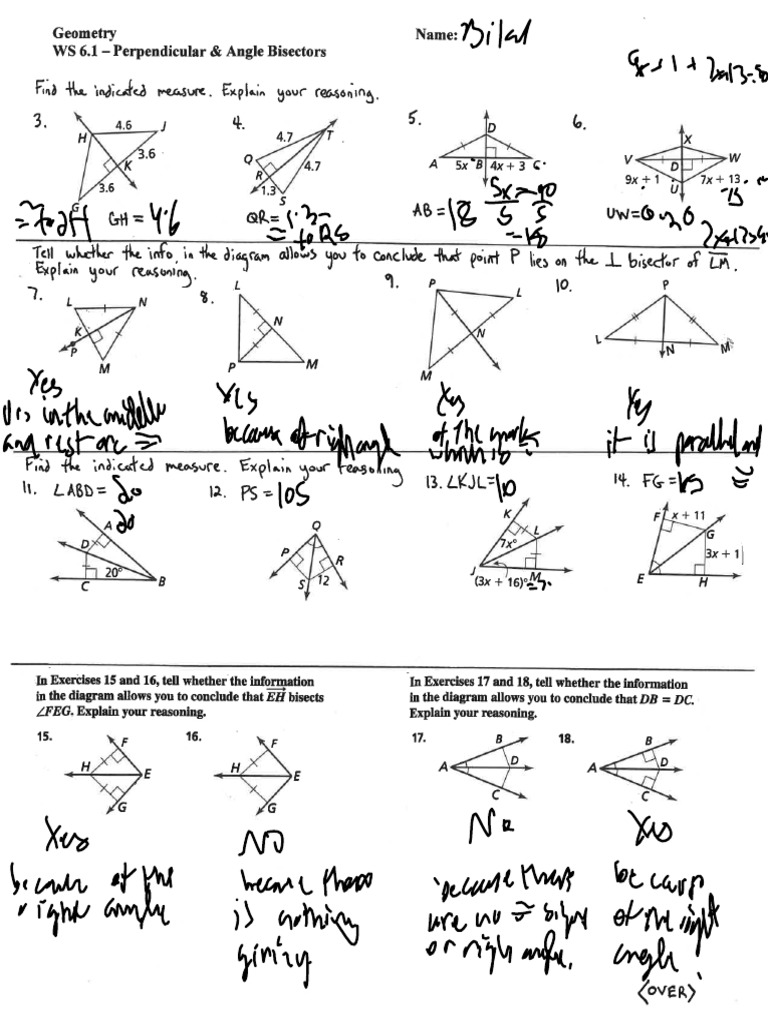 Geometry
Name: Bilal
WS 6.1 – Perpendicular & Angle Bisectors
Find the indicated measure. Explain your reasoning.
3.
4.6
H
J
3.6
K
3.6
G
GH = 4.6
4.
4.7
T
Q
4.7
R
1.3
S
QR = 1.3
= to RS
5.
D
A
5x
B
4x + 3
C
AB = 18
6.
X
V
W
D
9x + 1
7x + 13
U
UW =
Tell whether the info. in the diagram allows you to conclude that point P lies on the ⊥ bisector of LM.
Explain your reasoning.
7.
L
N
K
P
M
Yes
is in the middle
and rest are =
8.
L
N
P
M
Yes
because of right angle
9.
P
L
N
M
Yes
of the marks
which is
10.
P
L
N
M
Yes
it is parallel and
Find the indicated measure. Explain your reasoning
11. ∠ABD = 20
20
A
D
20°
C
B
12. PS = 105
Q
P
R
S
12
13. ∠KJL = 10
K
L
7x°
J
M
(3x + 16)°
14. FG =
F
x + 11
G
3x + 1
E
H
In Exercises 15 and 16, tell whether the information
in the diagram allows you to conclude that EH bisects
∠FEG. Explain your reasoning.
In Exercises 17 and 18, tell whether the information
in the diagram allows you to conclude that DB = DC.
Explain your reasoning.
15.
F
H
E
G
Yes
because of the
right angle
16.
F
H
E
G
NO
because there
is nothing
17.
B
A
D
C
No
because there
are no = signs
or right angle.
18.
B
A
D
C
Yes
because
of the right
angle
(OVER)